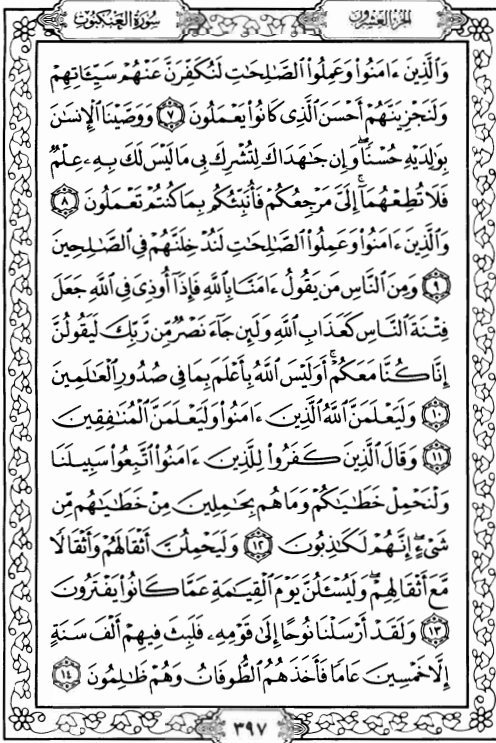 سُورَةُ العَنكبُوتِ
الجُزءُ العِشرُونَ
وَالَّذِينَ ءَامَنُوا۟ وَعَمِلُوا۟ الصَّـٰلِحَـٰتِ لَنُكَفِّرَنَّ عَنْهُمْ سَيِّـَٔاتِهِمْ
وَلَنَجْزِيَنَّهُمْ أَحْسَنَ الَّذِى كَانُوا۟ يَعْمَلُونَ ﴿٧﴾ وَوَصَّيْنَا الْإِنسَـٰنَ
بِوَٰلِدَيْهِ حُسْنًا ۖ وَإِن جَـٰهَدَاكَ لِتُشْرِكَ بِى مَا لَيْسَ لَكَ بِهِۦ عِلْمٌ
فَلَا تُطِعْهُمَآ ۚ إِلَىَّ مَرْجِعُكُمْ فَأُنَبِّئُكُم بِمَا كُنتُمْ تَعْمَلُونَ ﴿٨﴾
وَالَّذِينَ ءَامَنُوا۟ وَعَمِلُوا۟ الصَّـٰلِحَـٰتِ لَنُدْخِلَنَّهُمْ فِى الصَّـٰلِحِينَ
﴿٩﴾ وَمِنَ النَّاسِ مَن يَقُولُ ءَامَنَّا بِاللَّهِ فَإِذَآ أُوذِىَ فِى اللَّهِ جَعَلَ
فِتْنَةَ النَّاسِ كَعَذَابِ اللَّهِ وَلَئِن جَآءَ نَصْرٌ مِّن رَّبِّكَ لَيَقُولُنَّ
إِنَّا كُنَّا مَعَكُمْ ۚ أَوَلَيْسَ اللَّهُ بِأَعْلَمَ بِمَا فِى صُدُورِ الْعَـٰلَمِينَ
﴿١٠﴾ وَلَيَعْلَمَنَّ اللَّهُ الَّذِينَ ءَامَنُوا۟ وَلَيَعْلَمَنَّ الْمُنَـٰفِقِينَ
﴿١١﴾ وَقَالَ الَّذِينَ كَفَرُوا۟ لِلَّذِينَ ءَامَنُوا۟ اتَّبِعُوا۟ سَبِيلَنَا
وَلْنَحْمِلْ خَطَـٰيَـٰكُمْ وَمَا هُم بِحَـٰمِلِينَ مِنْ خَطَـٰيَـٰهُم مِّن
شَىْءٍ ۖ إِنَّهُمْ لَكَـٰذِبُونَ ﴿١٢﴾ وَلَيَحْمِلُنَّ أَثْقَالَهُمْ وَأَثْقَالًا
مَّعَ أَثْقَالِهِمْ ۖ وَلَيُسْـَٔلُنَّ يَوْمَ الْقِيَـٰمَةِ عَمَّا كَانُوا۟ يَفْتَرُونَ
﴿١٣﴾ وَلَقَدْ أَرْسَلْنَا نُوحًا إِلَىٰ قَوْمِهِۦ فَلَبِثَ فِيهِمْ أَلْفَ سَنَةٍ
إِلَّا خَمْسِينَ عَامًا فَأَخَذَهُمُ الطُّوفَانُ وَهُمْ ظَـٰلِمُونَ ﴿١٤﴾
٣٩٧